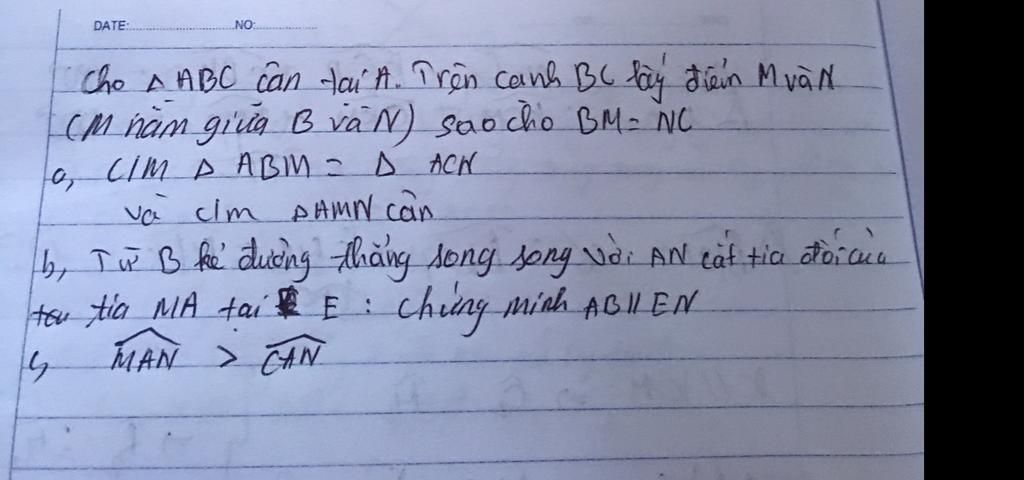 DATE:..............................NO:..................
Cho △ ABC cân tại A. Trên cạnh BC lấy điểm M và N
(M nằm giữa B và N) sao cho BM = NC
a, C/M △ ABM = △ ACN
và c/m △AMN cân
b, Từ B kẻ đường thẳng song song với AN cắt tia đối của
tia MA tại E : Chứng minh AB // EN
\widehat{MAN} > \widehat{CAN}